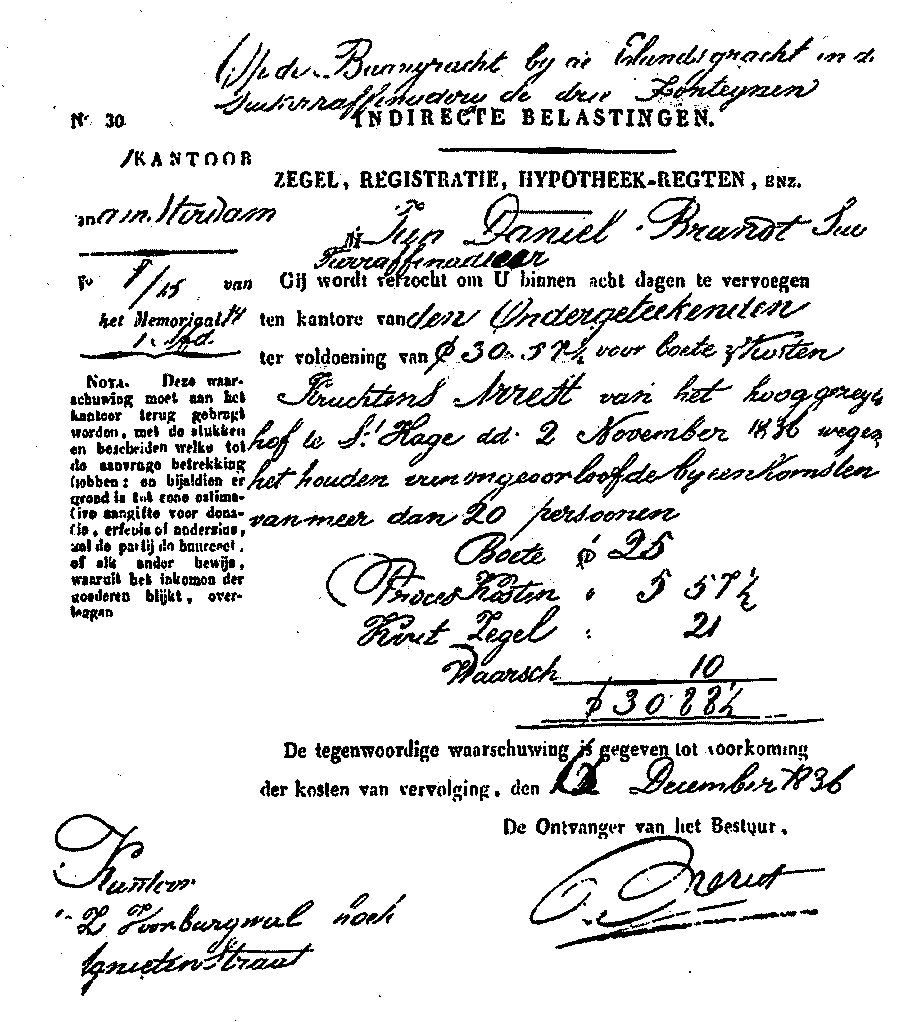 Op de Baangracht by de Elandsgracht in de
Suikerraffinadery de drie Fonteynen
No. 30.
INDIRECTE BELASTINGEN.
KANTOOR
ZEGEL, REGISTRATIE, HYPOTHEEK-REGTEN, ENZ.
van Amsterdam
Daniel Brandt Sui
kerraffinadeur
van
Gij wordt verzocht om U binnen acht dagen te vervoegen
het Memoriaal
ten kantore van den Ondergeteekenden
ter voldoening van ƒ 30.57½ voor boete & Kosten
NOTA. Deze waar-
schuwing moet aan het
kantoor terug gebragt
worden, met de stukken
en bescheiden welke tot
de aanvrage betrekking
hebben; en bijaldien er
grond is tot eene estima-
tive aangifte voor dona-
tie, erfenis of anderzins,
zal de partij de huurceel,
of elk ander bewijs,
waaruit het inkomen der
goederen blijkt, over-
leggen
Krachtens Arrest van het hooggereg
hof te S' Hage dd. 2 November 1836 wegens
het houden van ongeoorloofde byeenkomsten
van meer dan 20 persoonen
Boete ƒ 25
Proces Kosten " 5 57½
Kwit Zegel : 21
Waarsch 10
ƒ 30 88½
De tegenwoordige waarschuwing is gegeven tot voorkoming
der kosten van vervolging, den December 1836
De Ontvanger van het Bestuur,
Kantoor
Z Voorburgwal hoek
straat